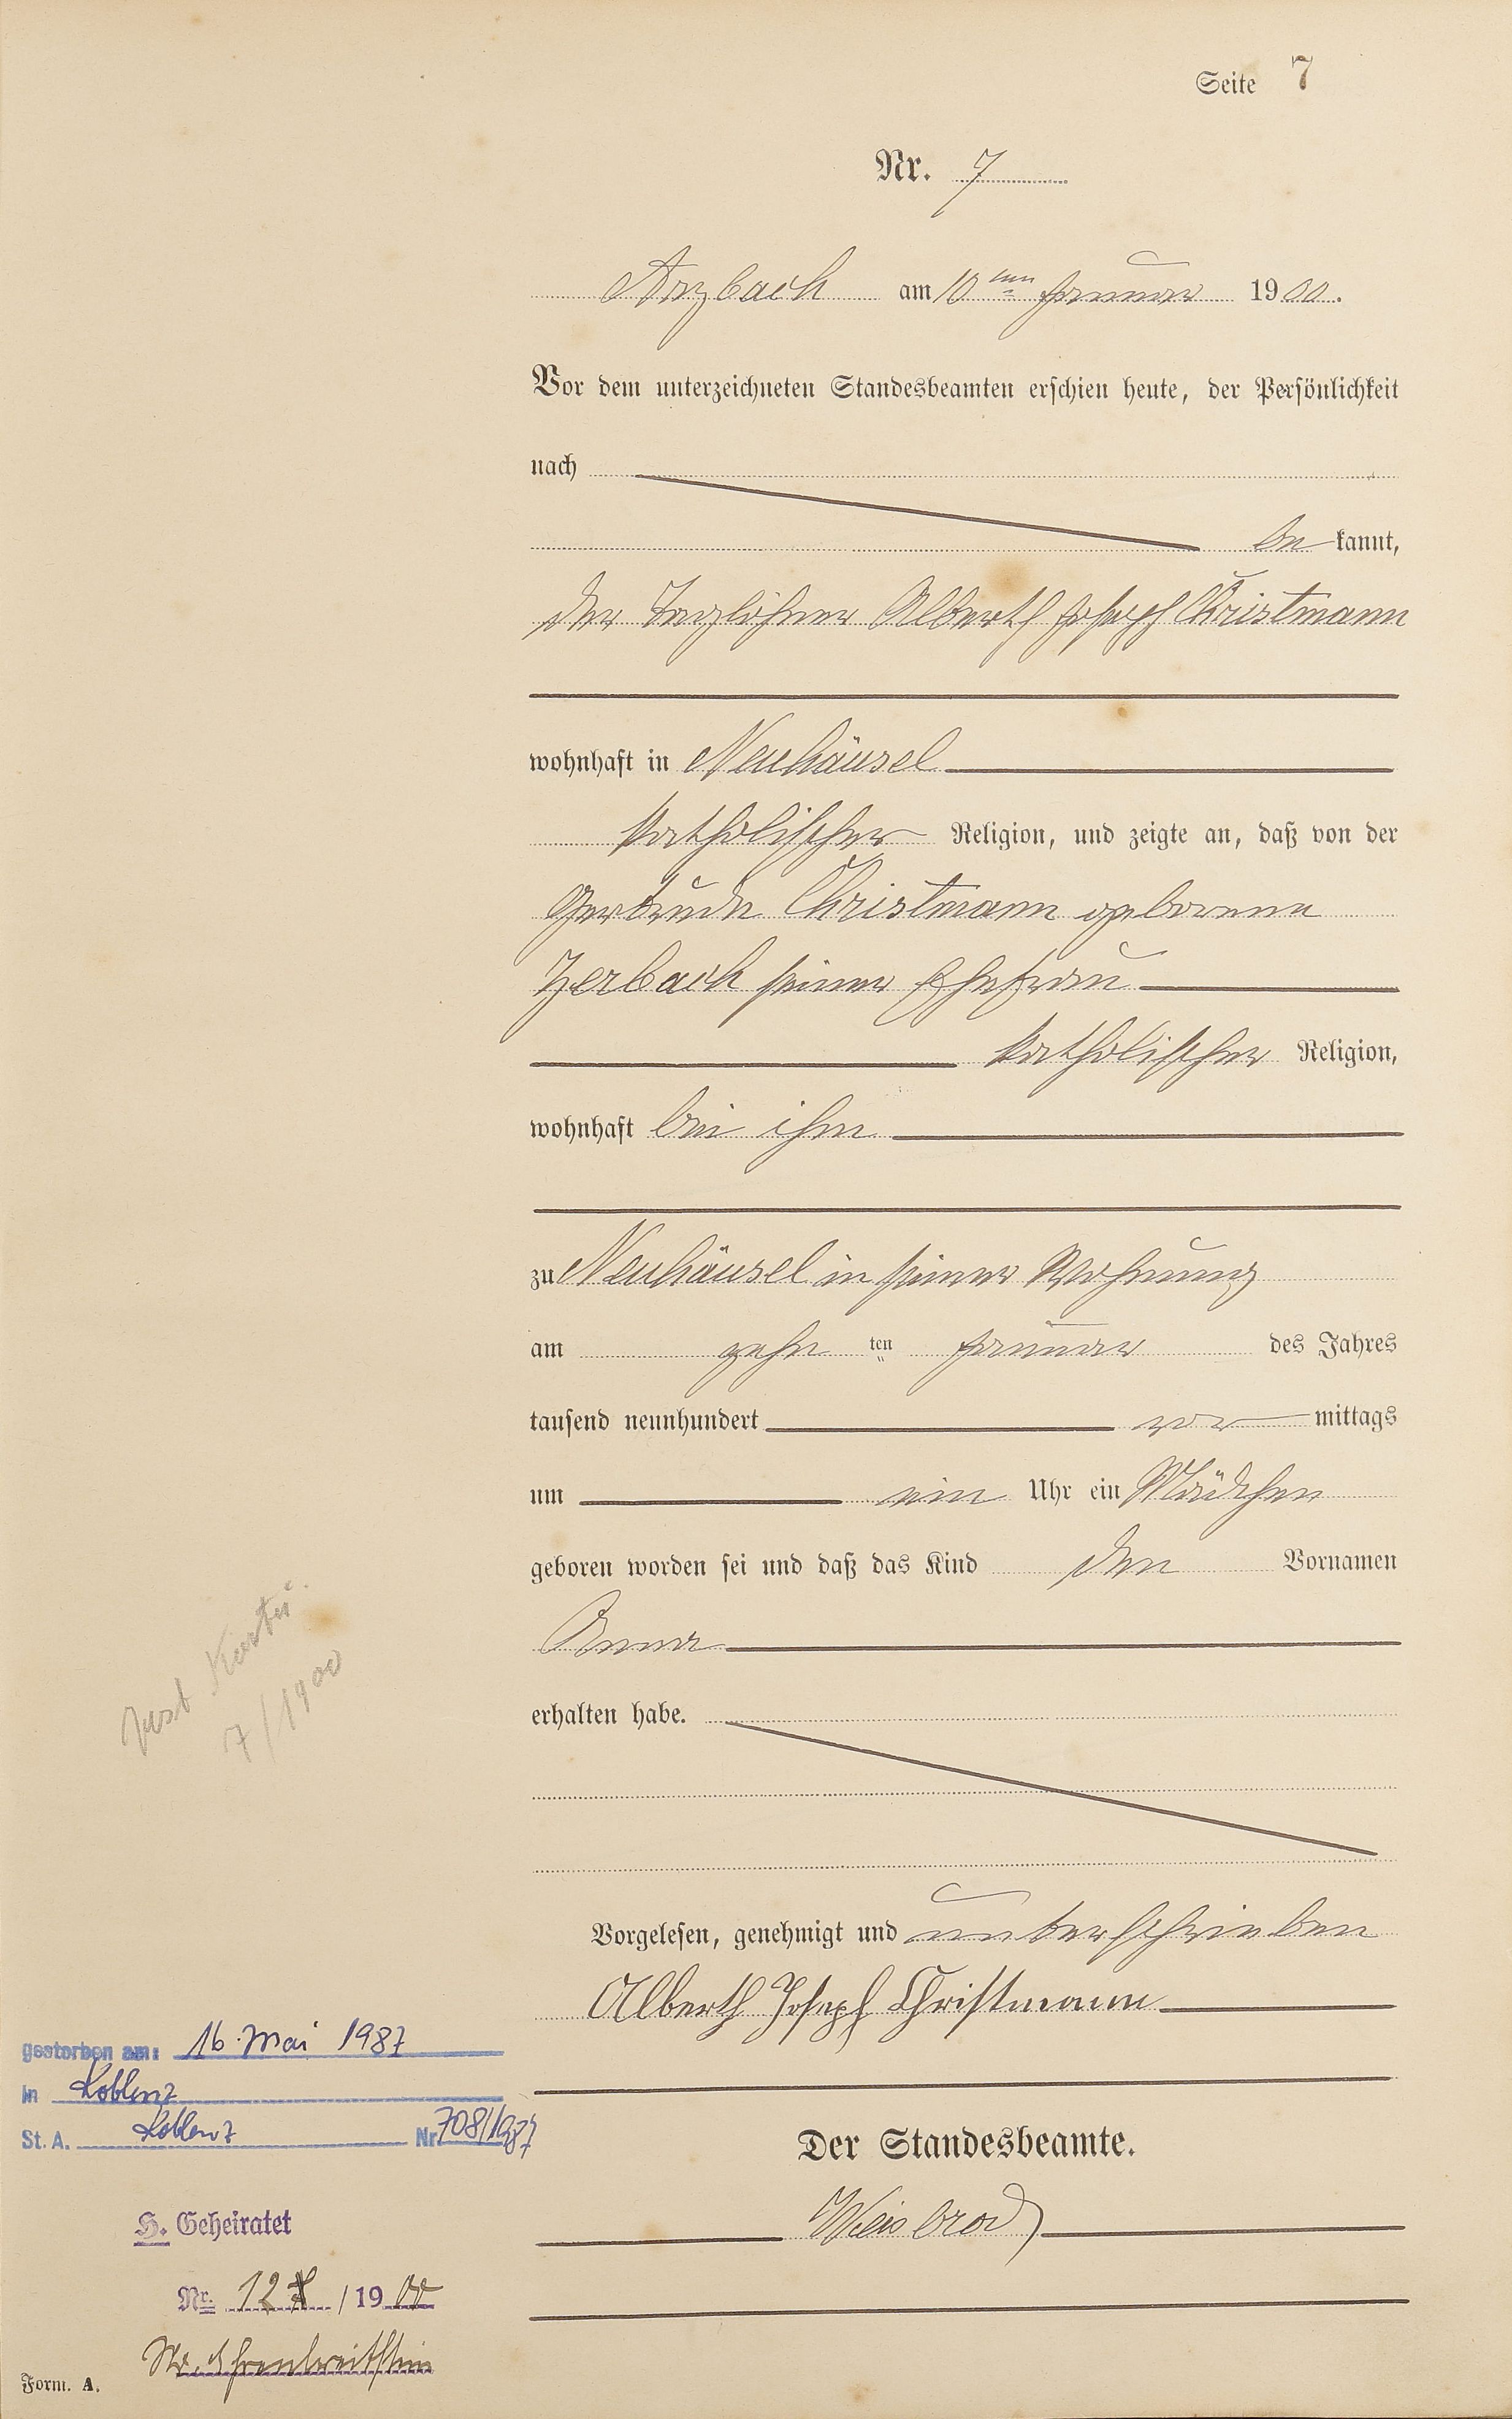 Seite 7
Nr. 7
Arzbach am 10ten Januar 1900.
Vor dem unterzeichneten Standesbeamten erschien heute, der Persönlichkeit
nach
be kannt,
der Taglöhner Alberth Joseph Christmann
wohnhaft in Neuhäusel
katholischer Religion, und zeigte an, daß von der
Gertrude Christmann geborene
Zerbach seiner Ehefrau
katholischer Religion,
wohnhaft bei ihm
zu Neuhäusel in seiner Wohnung
am zehn ten Januar des Jahres
tausend neunhundert vor mittags
um ein Uhr ein Mädchen
geboren worden sei und daß das Kind den Vornamen
Anna
erhalten habe.
Vorgelesen, genehmigt und unterschrieben
Alberth Joseph Christmann
Der Standesbeamte.
Weisbrod
7/1900
gestorben am: 16. Mai 1987
in Koblenz
St. A. Koblenz Nr 708/1987
H. Geheiratet
Nr. 12 /19
St. Ehrenbreitstein
Form. A.